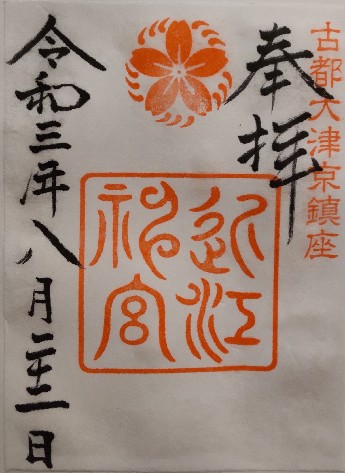 古都大津京鎮座
奉拝
近江
神宮
令和三年八月二十二日